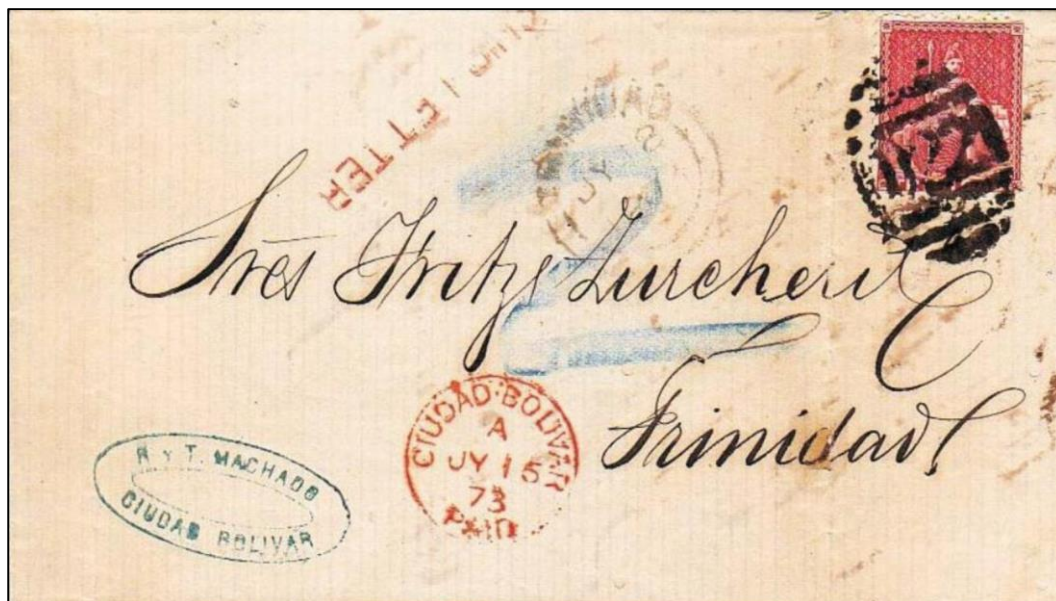 LETTER
TRINIDAD
JY
Sres Fritze Zurcher & C
Trinidad
CIUDAD·BOLIVAR
A
JY 15
73
PAID
R Y T. MACHADO
CIUDAD BOLIVAR
2